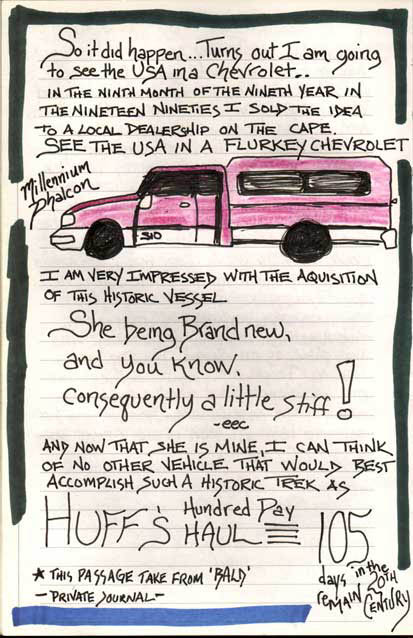 So it did happen... Turns out I am going
to see the USA in a Chevrolet..
IN THE NINTH MONTH OF THE NINETH YEAR IN
THE NINETEEN NINETIES I SOLD THE IDEA
TO A LOCAL DEALERSHIP ON THE CAPE.
SEE THE USA IN A FLURKEY CHEVROLET
Millennium
Phalcon
S10
I AM VERY IMPRESSED WITH THE AQUISITION
OF THIS HISTORIC VESSEL
She being Brand new,
and you know.
Consequently a little stiff!
-eec
AND NOW THAT SHE IS MINE, I CAN THINK
OF NO OTHER VEHICLE THAT WOULD BEST
ACCOMPLISH SUCH A HISTORIC TREK AS
HUFF'S Hundred Day HAUL
105
days in the
remain 20TH
CENTURY
* THIS PASSAGE TAKE FROM 'BALD'
-PRIVATE JOURNAL-